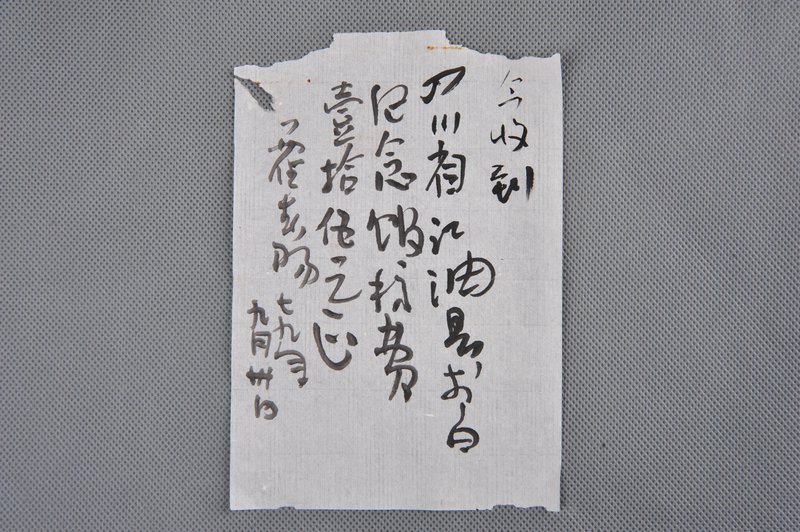 今收到
四川省江油县李白
纪念馆稿费
壹拾伍元正
七九年
九月卅日